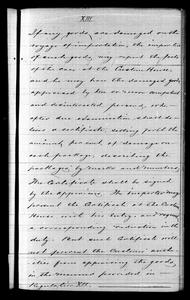 XIII
If any goods are damaged on the
voyage of importation, the importer
of such goods, may report the fact
of the day at the Custom House
and he may have the damaged goods
appraised by two or more competent
and disinterested persons, who
after due examination shall de-
liver a certificate, setting forth the
amount per cent of damage on
each package, describing the
packages by marks and numbers.
The Certificate shall be signed
by the appraisers. The importer may
present the Certificate at the Custom
House with his entry, and
a corresponding reduction in the
duty. But such Certificate shall
not prevent the Customs author-
ities from appraising the goods,
in the manner provided in
Regulation XII.